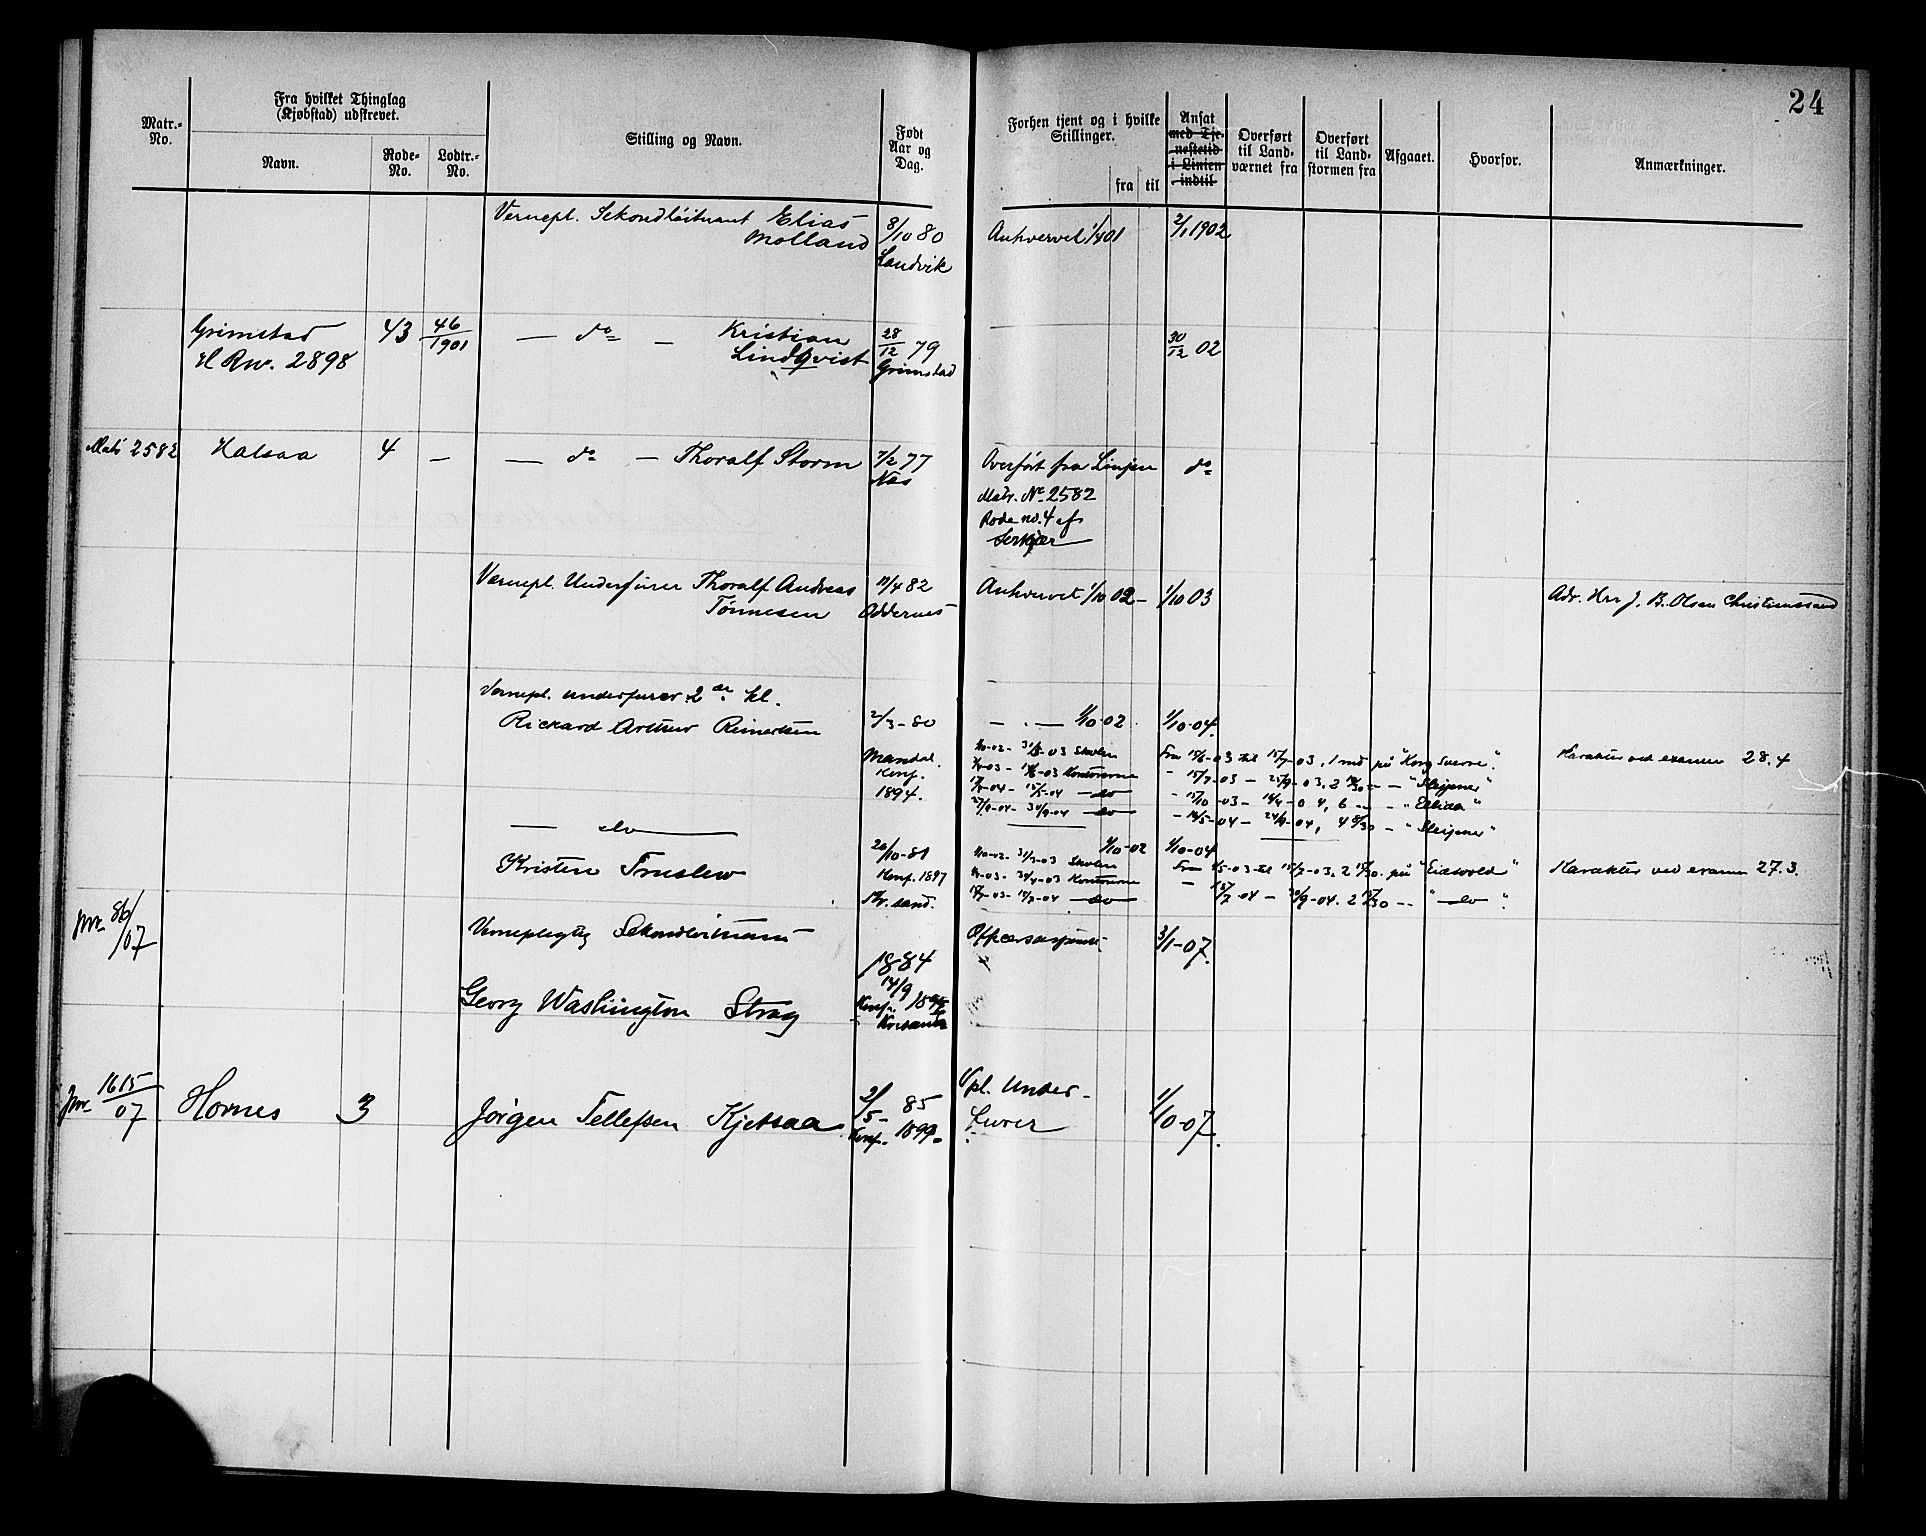 24
Matr.-No.
Fra hvilket Thinglag (Kjøbstad) udskrevet.
Navn.
Rode-No.
Lodtr.-No.
Stilling og Navn.
Født Aar og Dag.
Forhen tjent og i hvilke Stillinger.
fra
til
Ansat med Tjenestetid i Linien indtil
Overført til Landværnet fra
Overført til Landstormen fra
Afgaaet.
Hvorfor.
Anmærkninger.
Vernepl. Sekondløitnant Elias
Molland
8/10 80
Landvik
Ankvervet 1/4 01
2/1 1902
Grimstad
Rw. 2898
43
46/1901
— do — Kristian
Lindqvist
28/12 79
Grimstad
30/12 02
Matr 2582
Halsaa
4
—
— do — Thoralf Storm
7/2 77
Nes
Overført fra Linjen
Matr. No 2582
Rode no. 4 af
do
Vernepl. Underfurer Thoralf Andreas
Tønnesen
/4 82
Oddernes
Ankvervet 1/10 02 —
1/10 03
Adr. Hrr J. B. Olsen Christianssand
Vernepl. underfurer 2den kl.
Rickard Arthur Reinertsen
2/3-80
Mandal.
Konf.
1894.
— . — 1/10-02
1/10-04.
1/10-02 - 31/3-03 Skolen
Kontorerne
do
27/9-04 - 30/9-04 do
Fra 15/6-03 til 15/7-03, 1 md på "Kong Sverre".
- 15/7-03 - 25/9-03, 2 10/30 - - "Sleipner"
- 15/10-03 - 16/4-04, 6 - - "Ellida"
- 16/5-04 - 24/9-04, 4 8/30 - "Sleipner"
Karakter ved examen 28.4
— do —
Kristen Truslew
20/10-81
Konf. 1897
Kr. sand.
1/10-02
1/10-04
1/10-02 - 31/3-03 Skolen
Kontorerne
do
Fra 1/5-03 til 15/7-03, 2 15/30 på "Eidsvold"
- 15/7-04 - 30/9-04. 2 15/30 -- " do ".
Karakter ved examen 27.3.
Jnr. 86/07
Vernepligtig Sekondløitnant
Georg Washington Stray
1884
14/9
Konf. 1898
Krsand
Officersaspirant
3/1-07.
Jnr. 1615/07
Hornes
3
Jørgen Tellefsen Kjetsaa
2/5- 85
Konf. 1899
Vpl. Under-
furer
1/10-07.